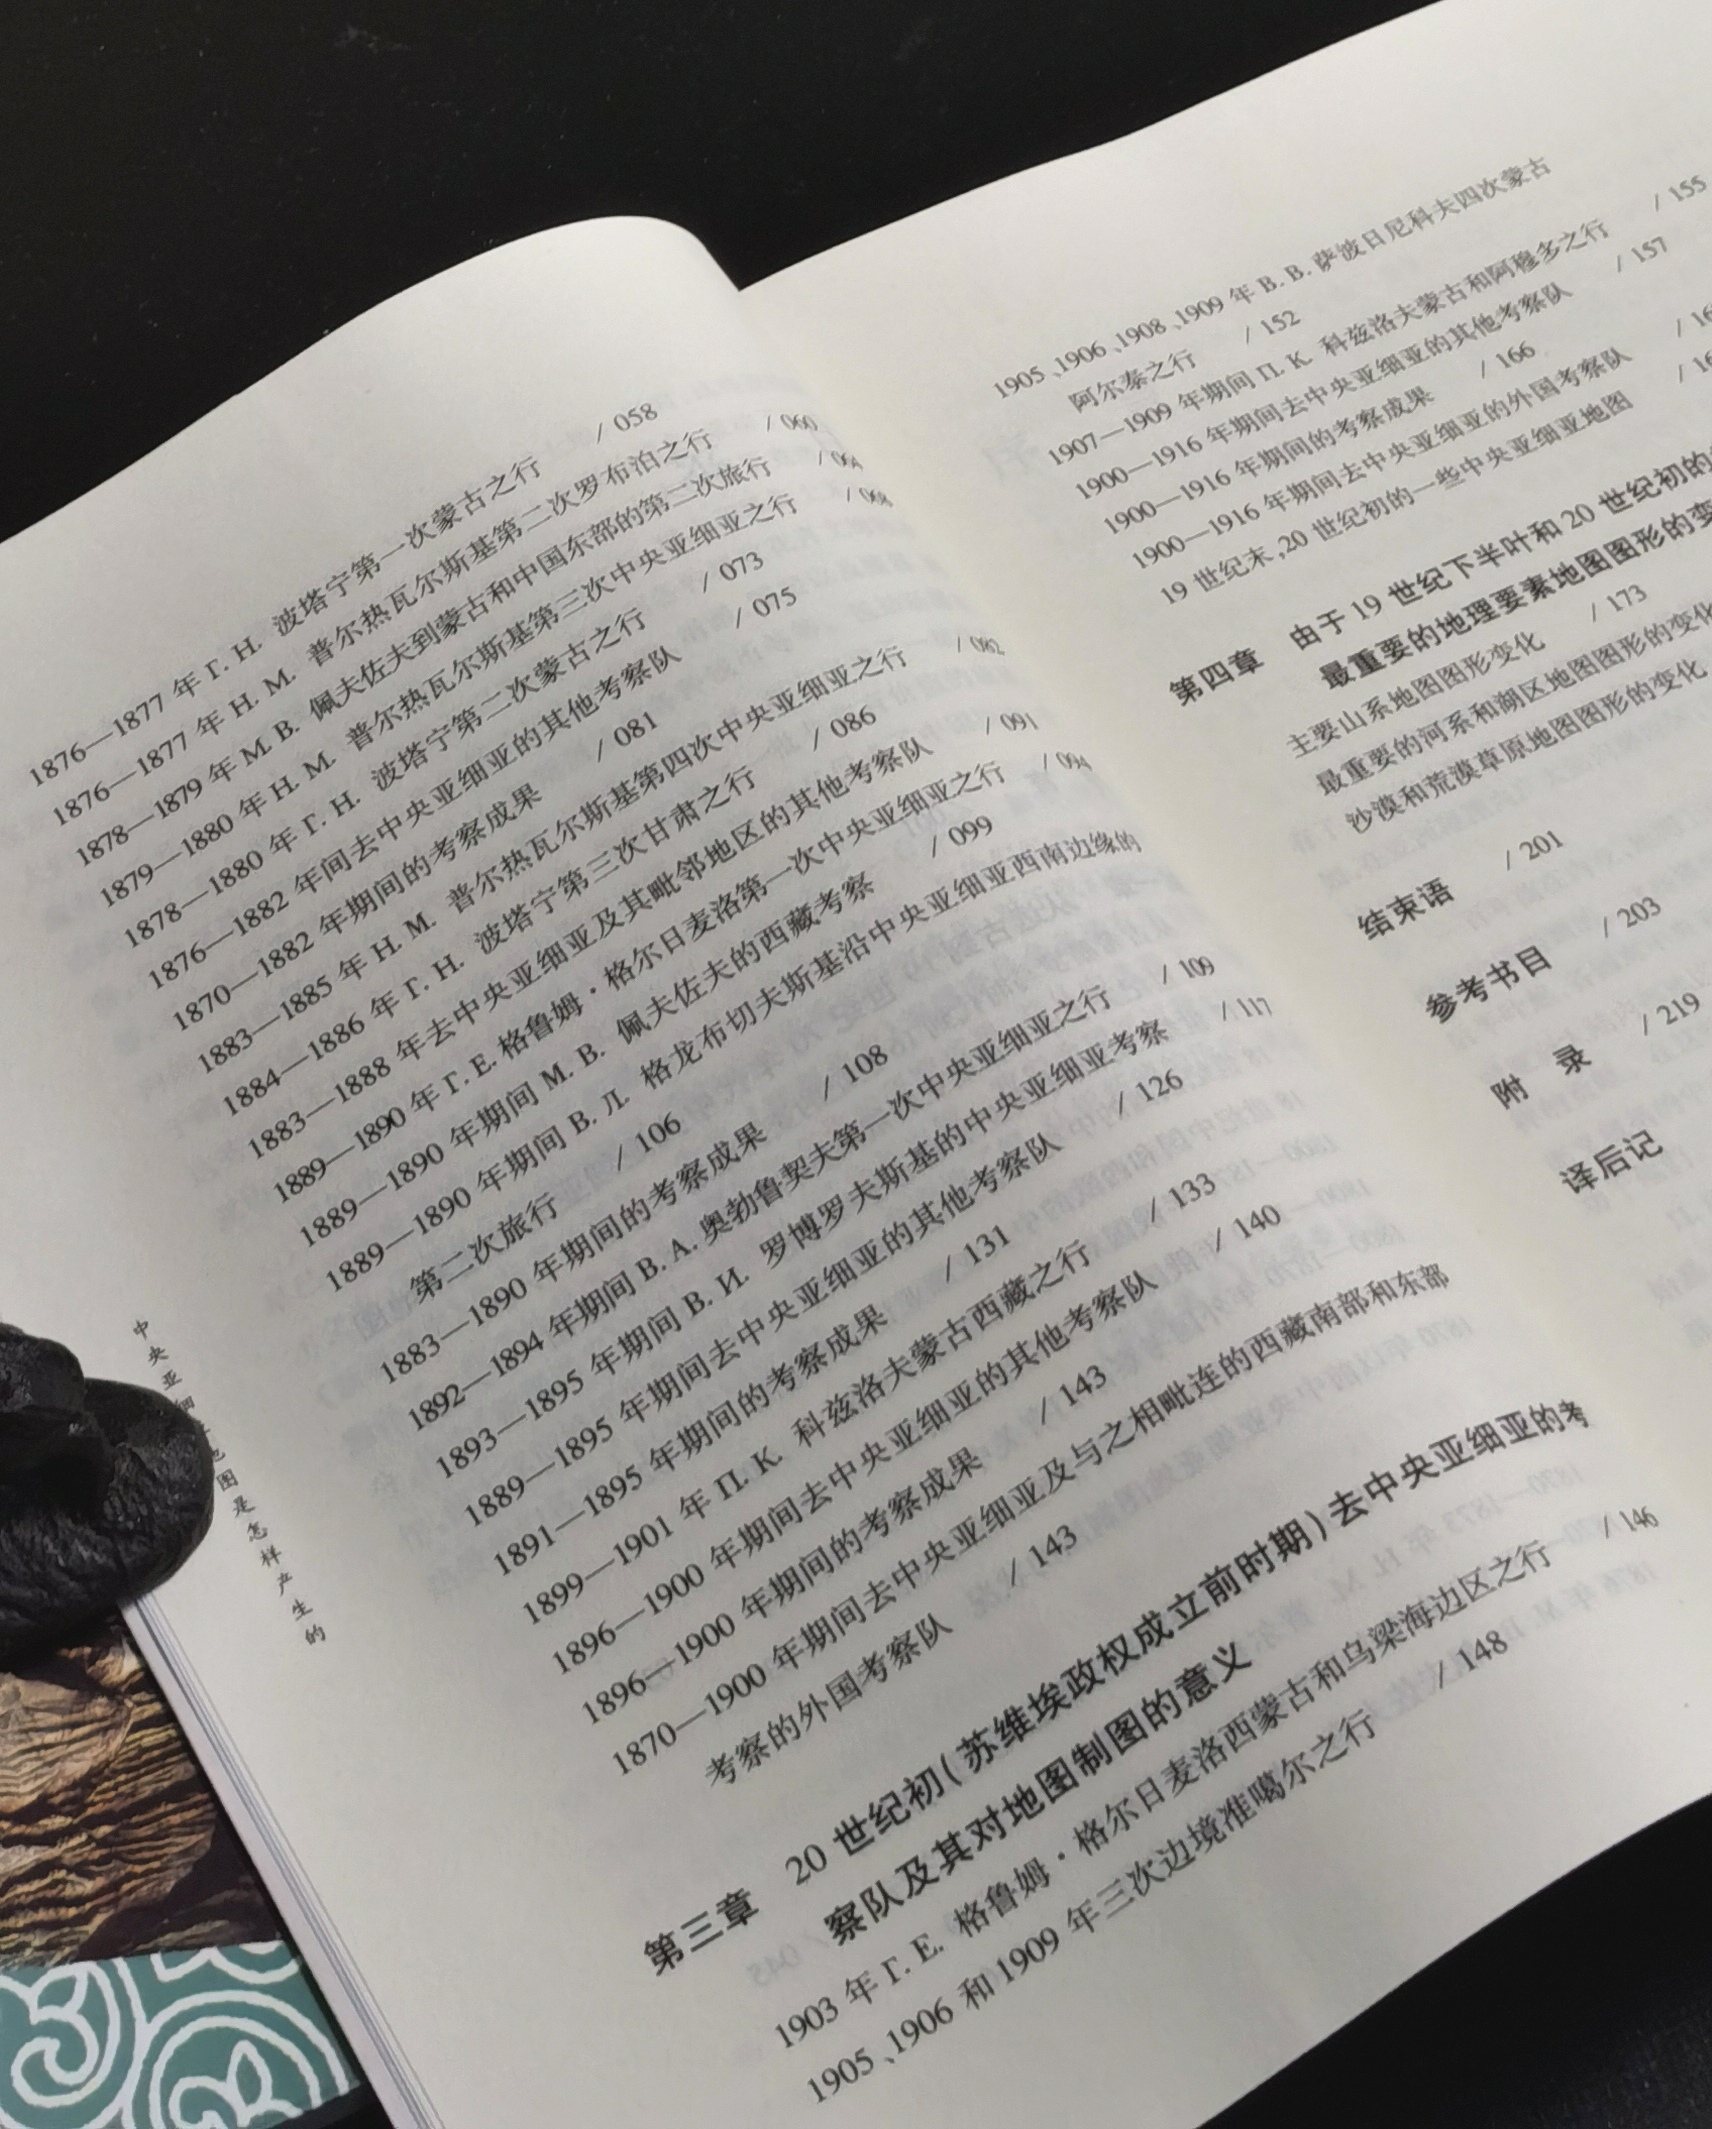 1876—1877 年 Г. Н. 波塔宁第一次蒙古之行 / 058
1876—1877 年 Н. М. 普尔热瓦尔斯基第二次罗布泊之行 / 060
1878—1879 年 М. В. 佩夫佐夫到蒙古和中国东部的第二次旅行 / 064
1879—1880 年 Н. М. 普尔热瓦尔斯基第三次中央亚细亚之行 / 068
1878—1880 年 Г. Н. 波塔宁第二次蒙古之行 / 073
1876—1882 年间去中央亚细亚的其他考察队 / 075
1870—1882 年期间的考察成果 / 081
1883—1885 年 Н. М. 普尔热瓦尔斯基第四次中央亚细亚之行 / 082
1884—1886 年 Г. Н. 波塔宁第三次甘肃之行 / 086
1883—1888 年去中央亚细亚及其毗邻地区的其他考察队 / 091
1889—1890 年 Г. Е. 格鲁姆·格尔日麦洛第一次中央亚细亚之行 / 094
1889—1890 年期间 М. В. 佩夫佐夫的西藏考察 / 099
1889—1890 年期间 В. Л. 格龙布切夫斯基沿中央亚细亚西南边缘的
第二次旅行 / 106
1883—1890 年期间的考察成果 / 108
1892—1894 年期间 В. А. 奥勃鲁契夫第一次中央亚细亚之行 / 109
1893—1895 年期间 В. И. 罗博罗夫斯基的中央亚细亚考察 / 117
1889—1895 年期间去中央亚细亚的其他考察队 / 126
1891—1895 年期间的考察成果 / 131
1899—1901 年 П. К. 科兹洛夫蒙古西藏之行 / 133
1896—1900 年期间去中央亚细亚的其他考察队 / 140
1896—1900 年期间的考察成果 / 143
1870—1900 年期间去中央亚细亚及与之相毗连的西藏南部和东部
考察的外国考察队 / 143
第三章 20 世纪初(苏维埃政权成立前时期)去中央亚细亚的考
察队及其对地图制图的意义
1903 年 Г. Е. 格鲁姆·格尔日麦洛西蒙古和乌梁海边区之行 / 146
1905、1906 和 1909 年三次边境准噶尔之行 / 148
中央亚细
图是怎样产生的
1905、1906、1908、1909 年 В. В. 萨波日尼科夫四次蒙古
阿尔泰之行 / 152
1907—1909 年期间 П. К. 科兹洛夫蒙古和阿穆多之行 / 155
1900—1916 年期间去中央亚细亚的其他考察队 / 157
1900—1916 年期间的考察成果 / 166
1900—1916 年期间去中央亚细亚的外国考察队 / 16
19 世纪末,20 世纪初的一些中央亚细亚地图 / 16
第四章 由于 19 世纪下半叶和 20 世纪初的
最重要的地理要素地图图形的变
主要山系地图图形变化 / 173
最重要的河系和湖区地图图形的变化
沙漠和荒漠草原地图图形的变化
结束语 / 201
参考书目 / 203
附 录 / 219
译后记